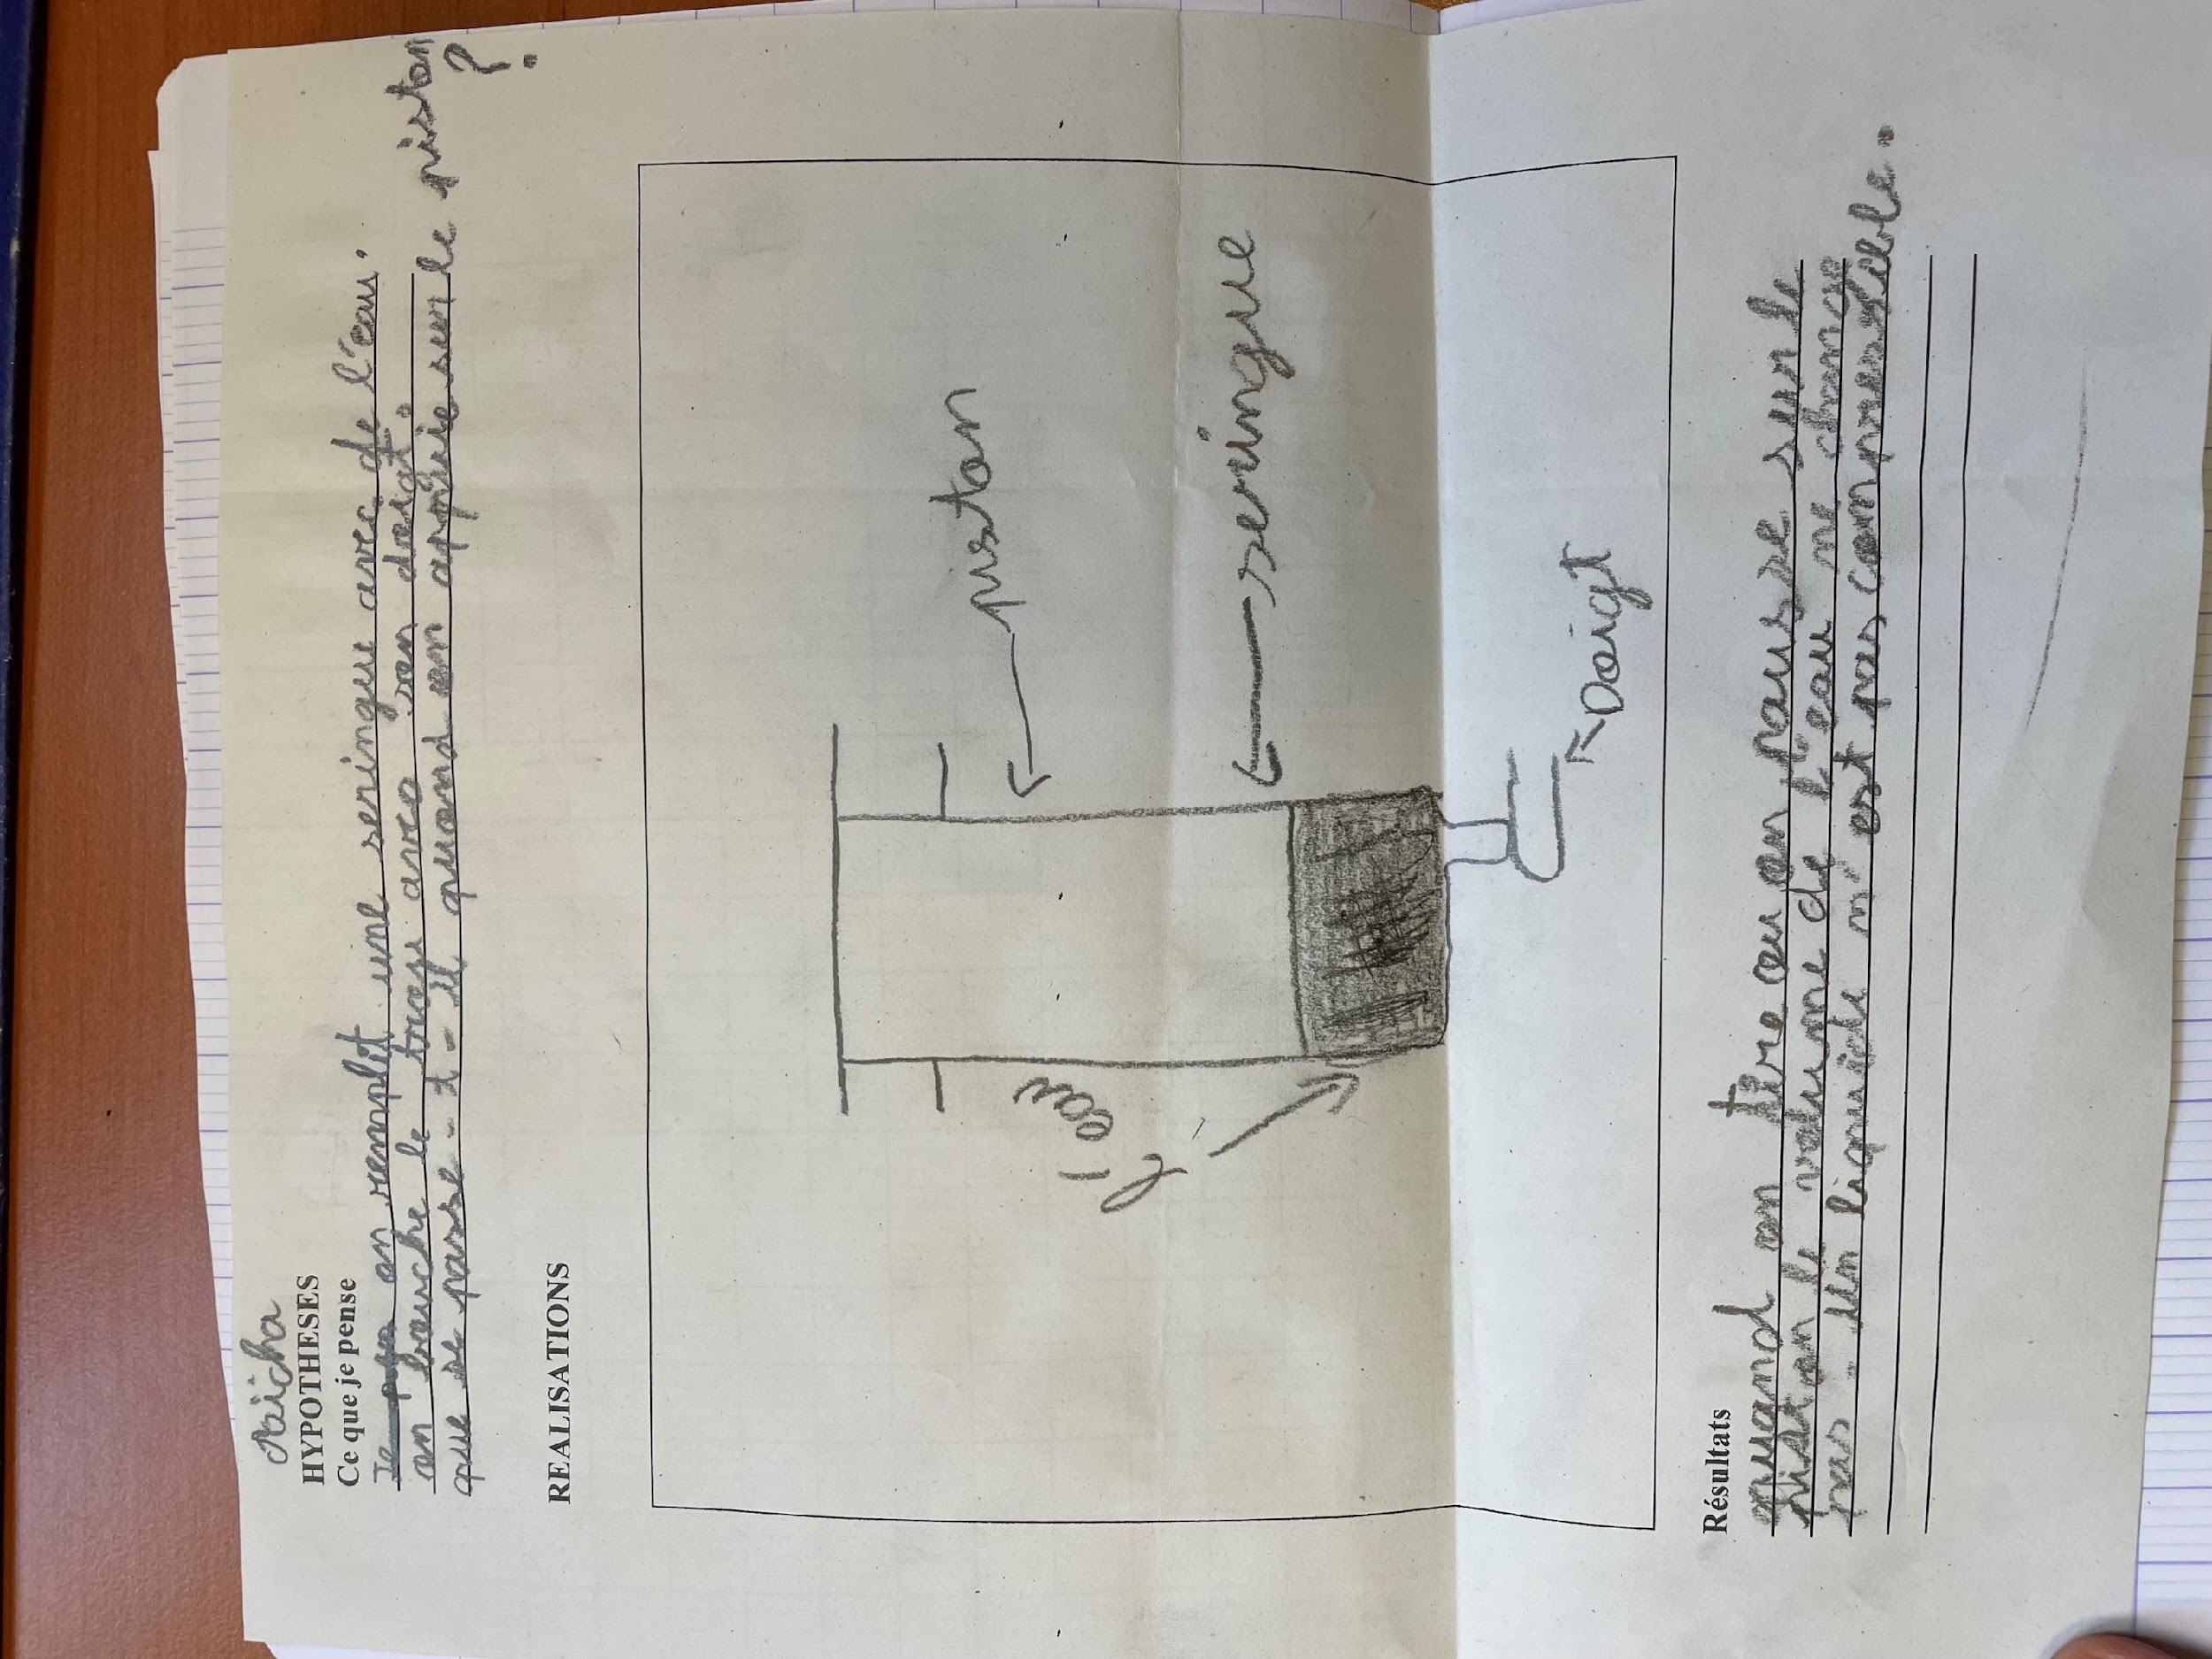 Aicha
HYPOTHESES
Ce que je pense
on remplit une seringue avec de l'eau.
on bouche le troru avec son doigt.
que se passe-t-il quand on appuie sur le piston
?
REALISATIONS
piston
seringue
l'eau
Doigt
Résultats
quand on tire ou on pousse sur le
piston le volume de l'eau ne change
pas. un liquide n'est pas compressible.